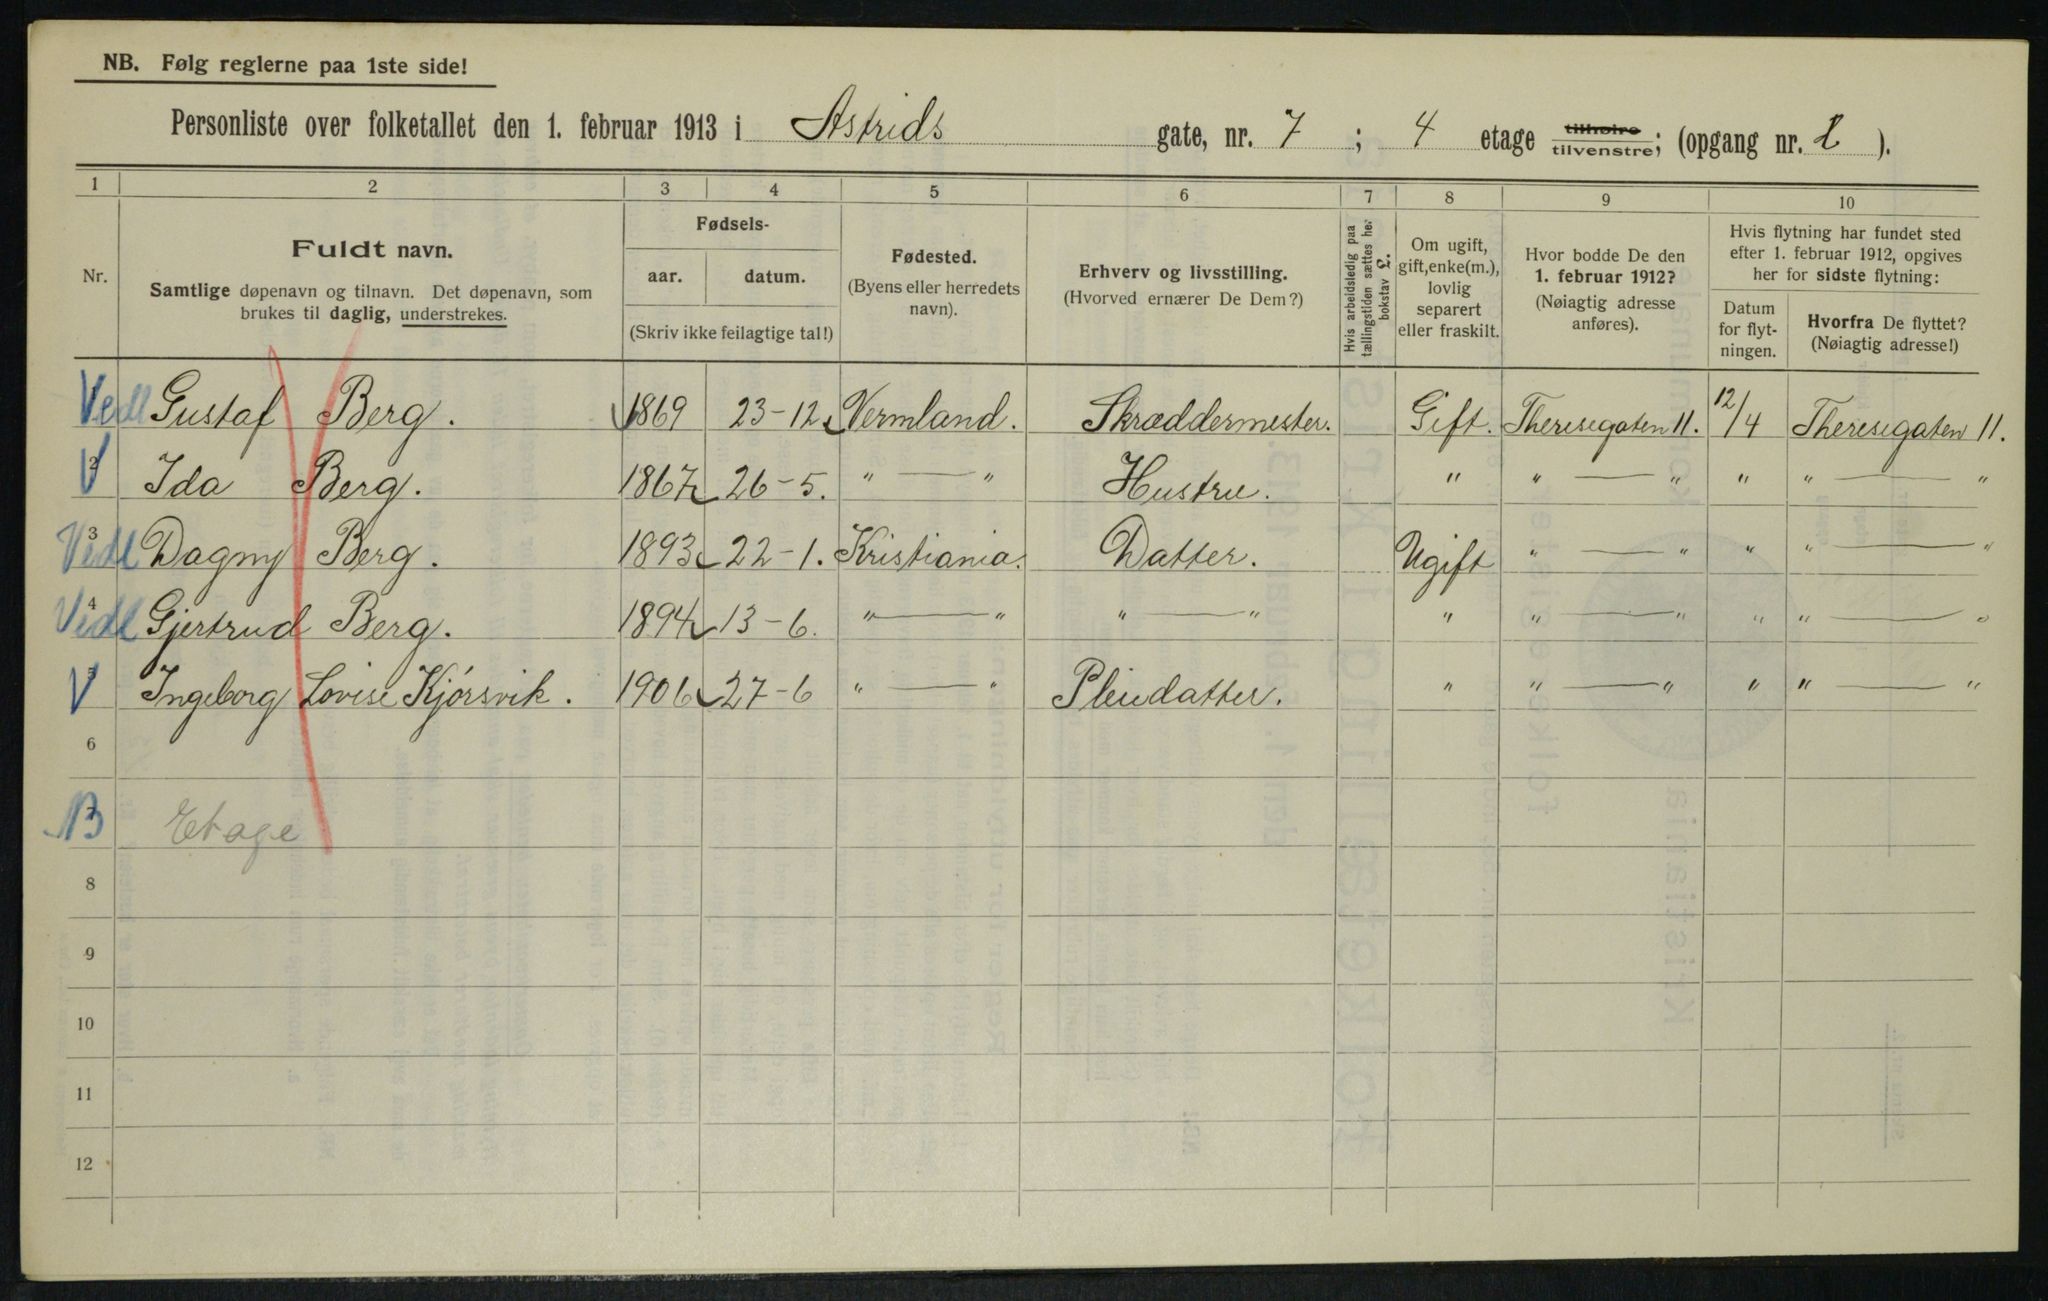 NB. Følg reglerne paa 1ste side!
Personliste over folketallet den 1. februar 1913 i Astrids gate, nr. 7 ; 4 etage tilhøire tilvenstre; (opgang nr. ).
1 2 3 4 5 6 7 8 9 10
Nr.
Fuldt navn.
Samtlige døpenavn og tilnavn. Det døpenavn, som
brukes til daglig, understrekes.
Fødsels-
aar. datum.
(Skriv ikke feilagtige tal!)
Fødested.
(Byens eller herredets
navn).
Erhverv og livsstilling.
(Hvorved ernærer De Dem?)
Hvis arbeidsledig paa
tællingstiden sættes her
bokstav L.
Om ugift,
gift, enke(m.),
lovlig
separert
eller fraskilt.
Hvor bodde De den
1. februar 1912?
(Nøiagtig adresse
anføres).
Hvis flytning har fundet sted
efter 1. februar 1912, opgives
her for sidste flytning:
Datum
for flyt-
ningen.
Hvorfra De flyttet?
(Nøiagtig adresse!)
Vedl Gustaf Berg. 1869 23-12 Vermland. Skræddermester. Gift. Theresegaten 11. 12/4 Theresegaten 11.
V 2 Ida Berg. 1867 26-5. " — " Hustru. " " — " " " — "
Vedl 3 Dagny Berg. 1893 22-1. Kristiania. Datter. Ugift " — " " " — "
Vedl 4 Gjertrud Berg. 1894 13-6. " — " " — " " " — " " " — "
V 5 Ingeborg Lovise Kjørsvik. 1906 27-6 " — " Pleiedatter. " " — " " " — "
6
B 7 Etage
8
9
10
11
12